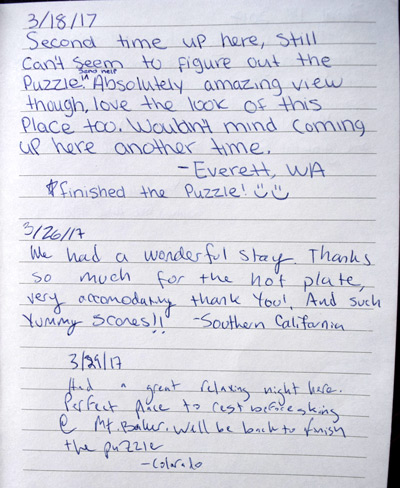 3/18/17
Second time up here, still
Can't Seem to figure out the
Send help
Puzzle! Absolutely amazing view
though, love the look of this
Place too. Wouldn't mind coming
up here another time.
- Everett, WA
finished the Puzzle!
3/26/17
We had a wonderful stay. Thanks
so much for the hot plate,
very accomodating thank You!, And such
Yummy Scones!! -Southern California
3/29/17
Had a great relaxing night here.
Perfect place to rest before skiing
@ Mt. Baker. We'll be back to finish
the puzzle
-Colorado